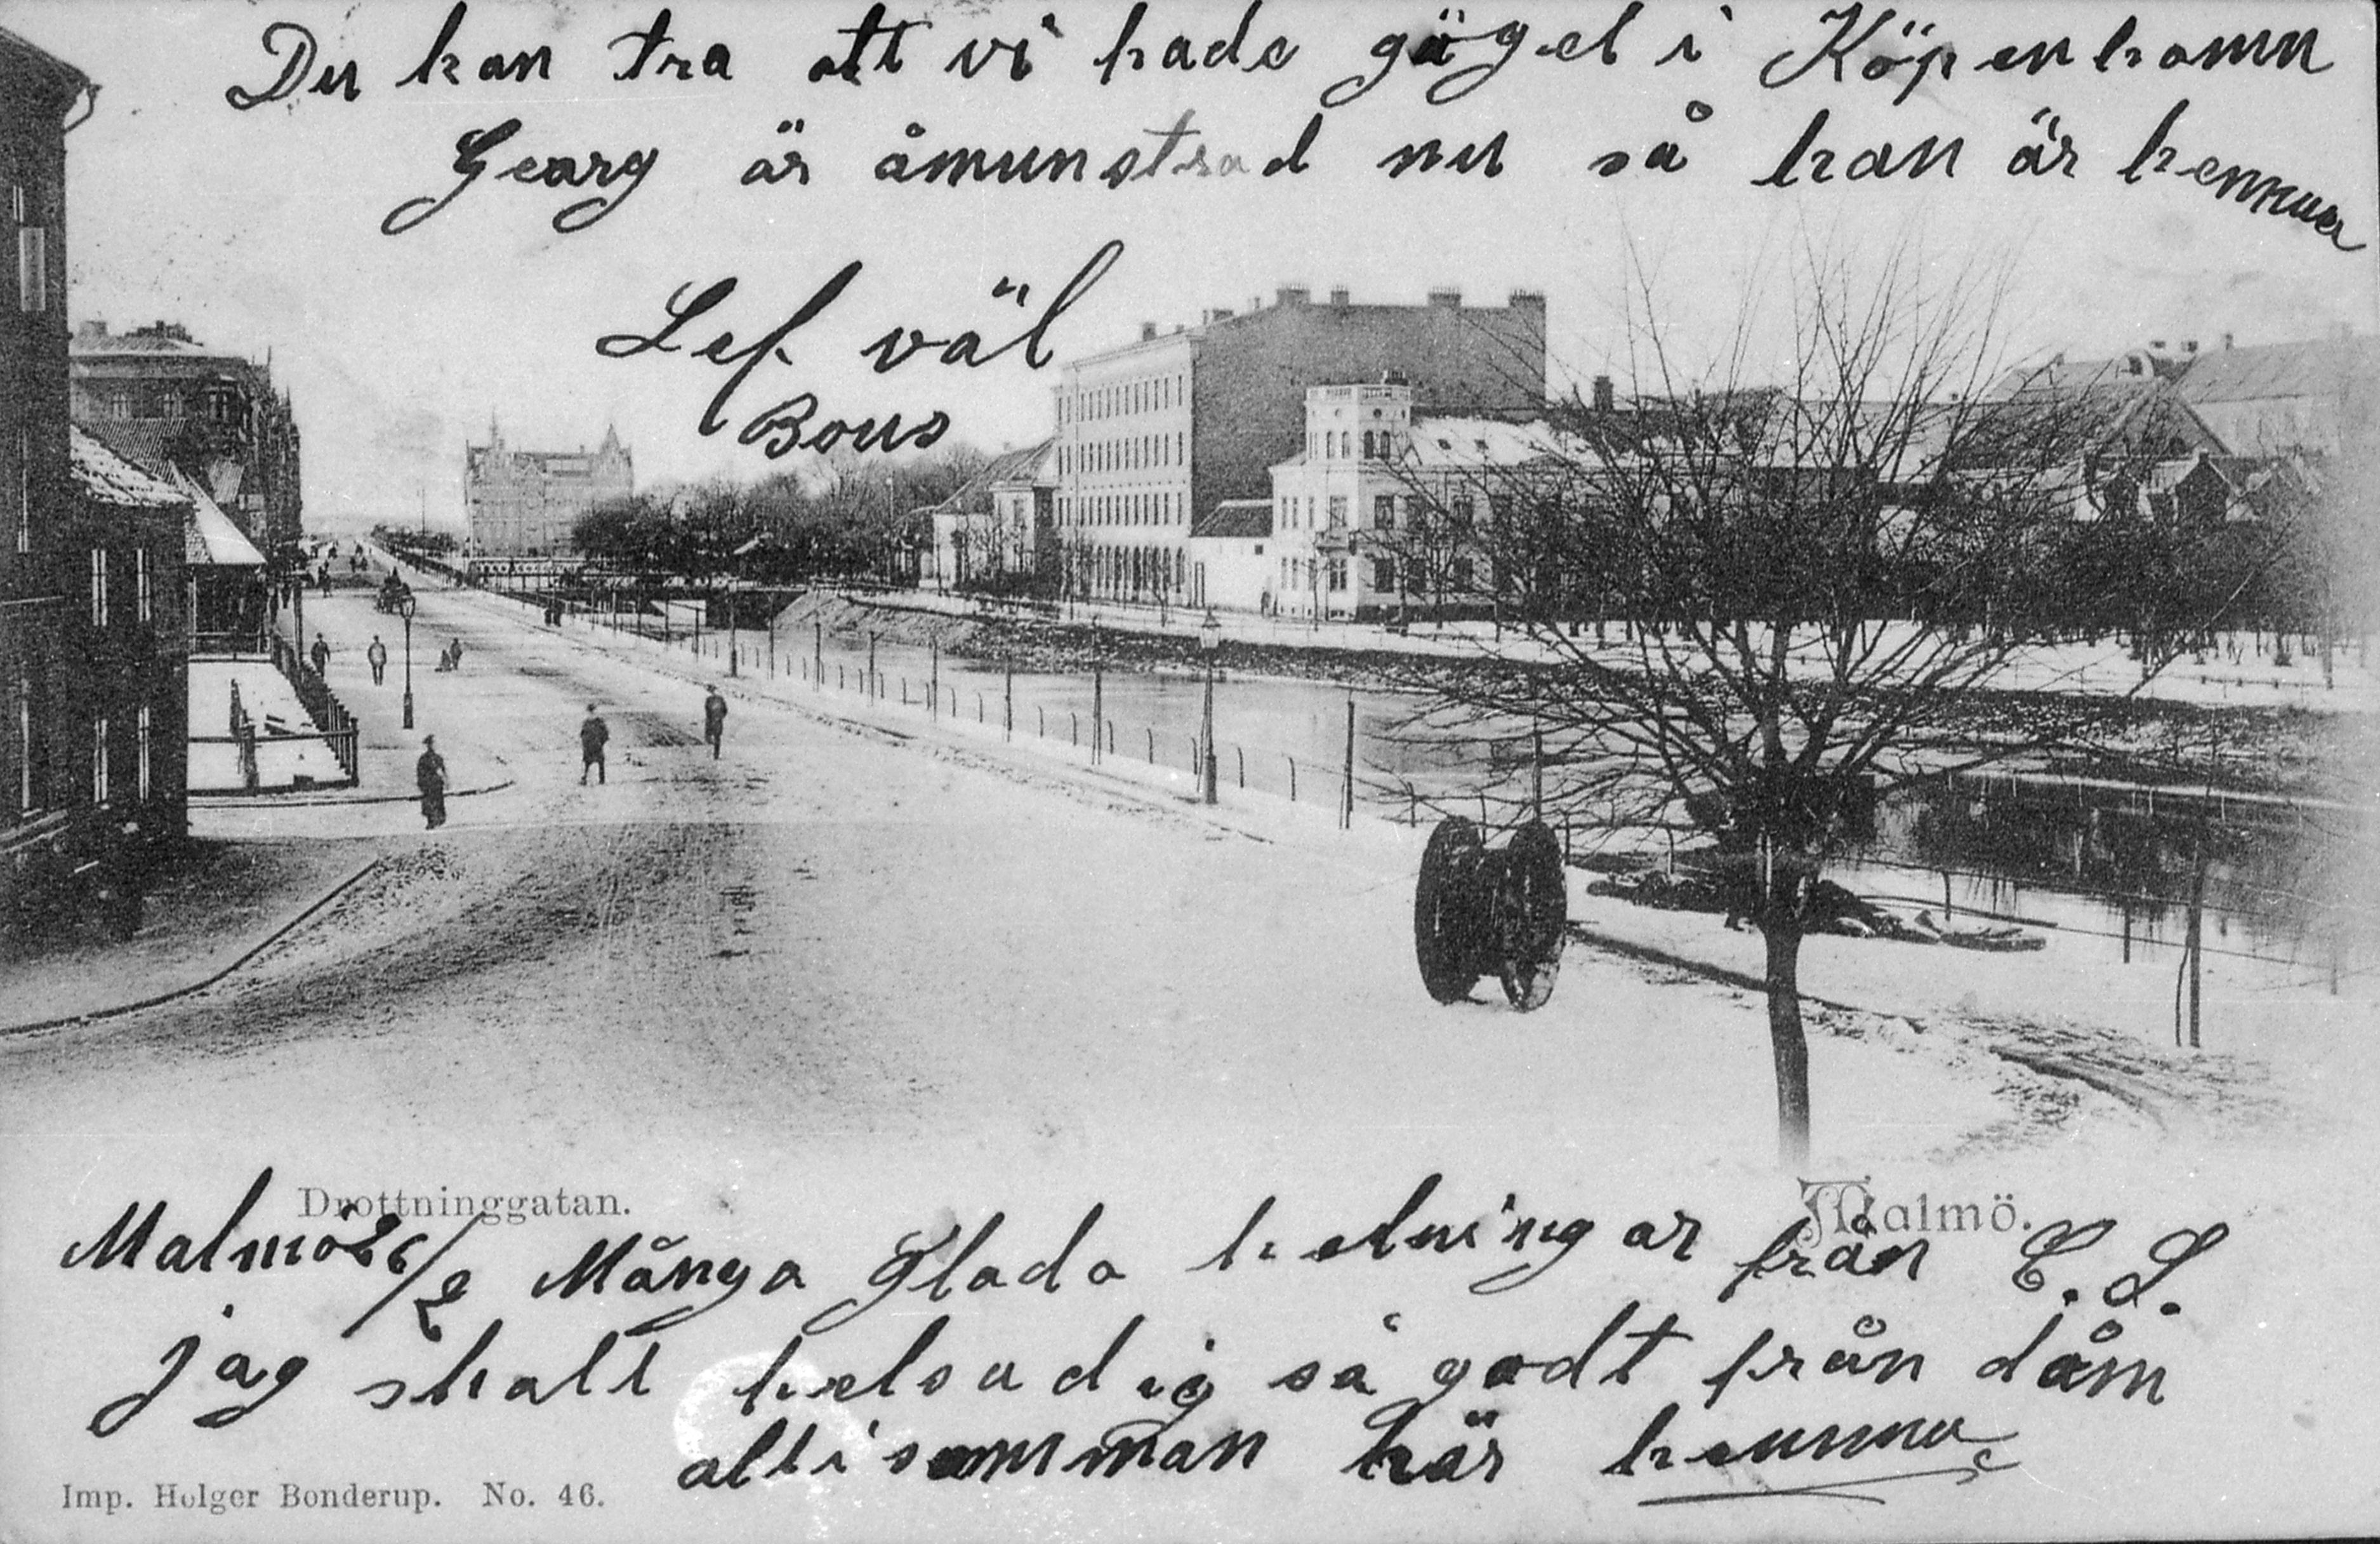 Du kan tra att vi hade gögel i Köpenhamn
Gearg är åmunstrad nu så han är hemma
Lef väl
Bous
Drottninggatan.
Malmö.
Malmö 26/2 Många Glada helningar från C. L.
jag skall helsa dig så godt från dåm
alltisamman här hemma
Imp. Holger Bonderup. No. 46.